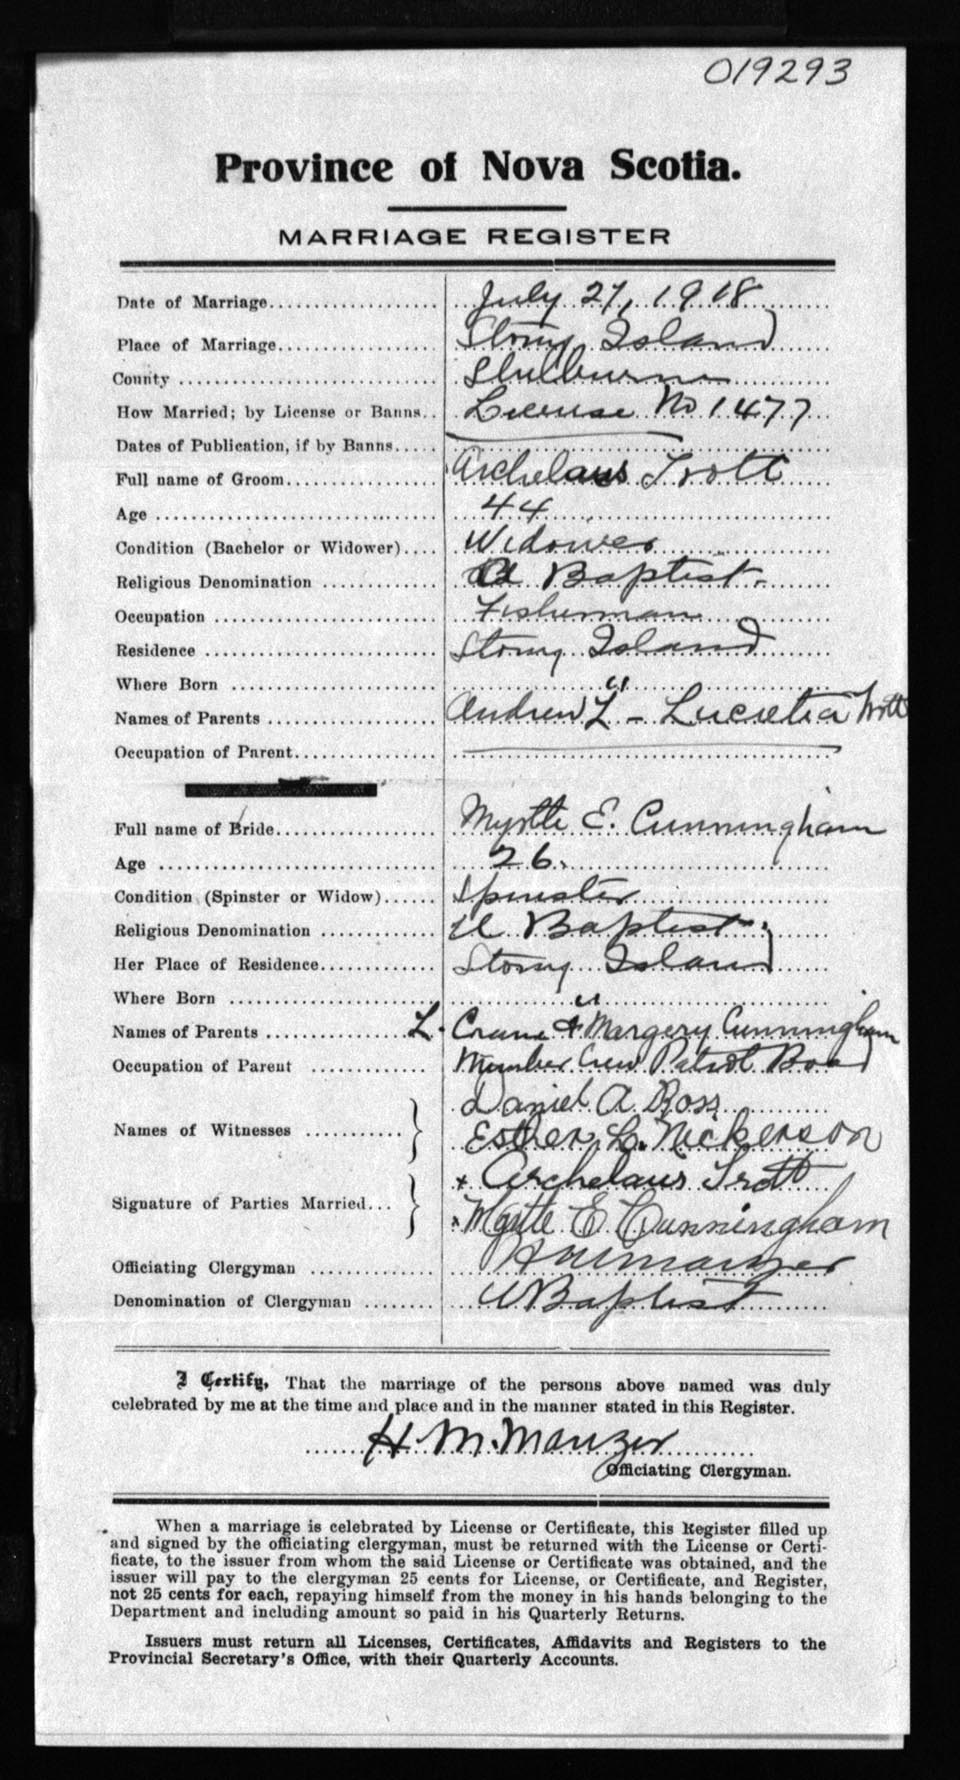 019293
Province of Nova Scotia.
MARRIAGE REGISTER
Date of Marriage.................... July 27, 1918
Place of Marriage................... Stony Island
County .............................. Shelburne
How Married; by License or Banns.. License No 1477
Dates of Publication, if by Banns.....
Full name of Groom.................. Archelaus Trott
Age ................................. 44
Condition (Bachelor or Widower).... Widower
Religious Denomination ............ U Baptist.
Occupation ......................... Fisherman
Residence .......................... Stony Island
Where Born ......................... "
Names of Parents ................... Andrew L - Lucretia Trott
Occupation of Parent................
Full name of Bride.................. Myrtle E. Cunningham
Age ................................. 26.
Condition (Spinster or Widow)...... Spinster
Religious Denomination ............ U Baptist
Her Place of Residence............. Stony Island
Where Born ......................... "
Names of Parents ................ L. Crane & Margery Cunningham
Occupation of Parent ............. Member Crew Patrol Boat
Names of Witnesses ........... } Daniel A Ross
Esther L. Nickerson
Signature of Parties Married... } x Archelaus Trott
x Myrtle E Cunningham
Officiating Clergyman ............. H M Manzer
Denomination of Clergyman ........ U Baptist
I Certify, That the marriage of the persons above named was duly
celebrated by me at the time and place and in the manner stated in this Register.
H. M. Manzer
Officiating Clergyman.
When a marriage is celebrated by License or Certificate, this Register filled up
and signed by the officiating clergyman, must be returned with the License or Certi-
ficate, to the issuer from whom the said License or Certificate was obtained, and the
issuer will pay to the clergyman 25 cents for License, or Certificate, and Register,
not 25 cents for each, repaying himself from the money in his hands belonging to the
Department and including amount so paid in his Quarterly Returns.
Issuers must return all Licenses, Certificates, Affidavits and Registers to the
Provincial Secretary's Office, with their Quarterly Accounts.